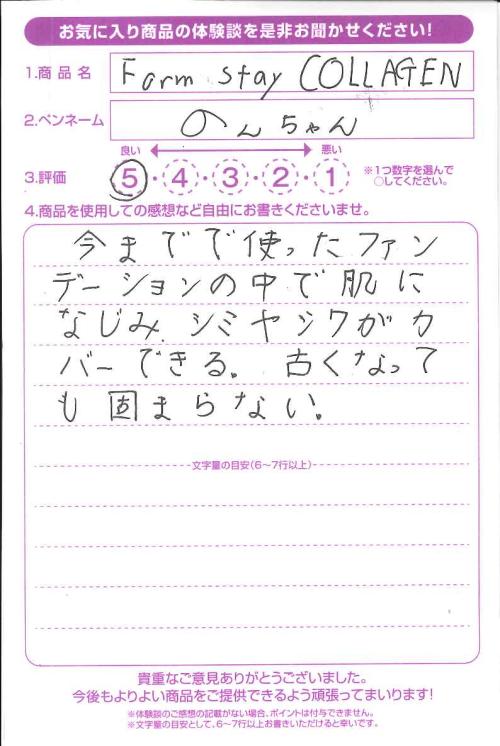 お気に入り商品の体験談を是非お聞かせください!
1.商品名 Farm stay COLLAGEN
2.ペンネーム のんちゃん
良い 悪い
3.評価 5・4・3・2・1 ※1つ数字を選んで
○してください。
4.商品を使用しての感想など自由にお書きくださいませ。
今までで使ったファン
デーションの中で肌に
なじみ、シミヤシワがカ
バーできる。古くなって
も固まらない。
文字量の目安(6〜7行以上)
貴重なご意見ありがとうございました。
今後もよりよい商品をご提供できるよう頑張ってまいります!
※体験談のご感想の記載がない場合、ポイントは付与できません。
※文字量の目安として、6〜7行以上お書きいただけると幸いです。